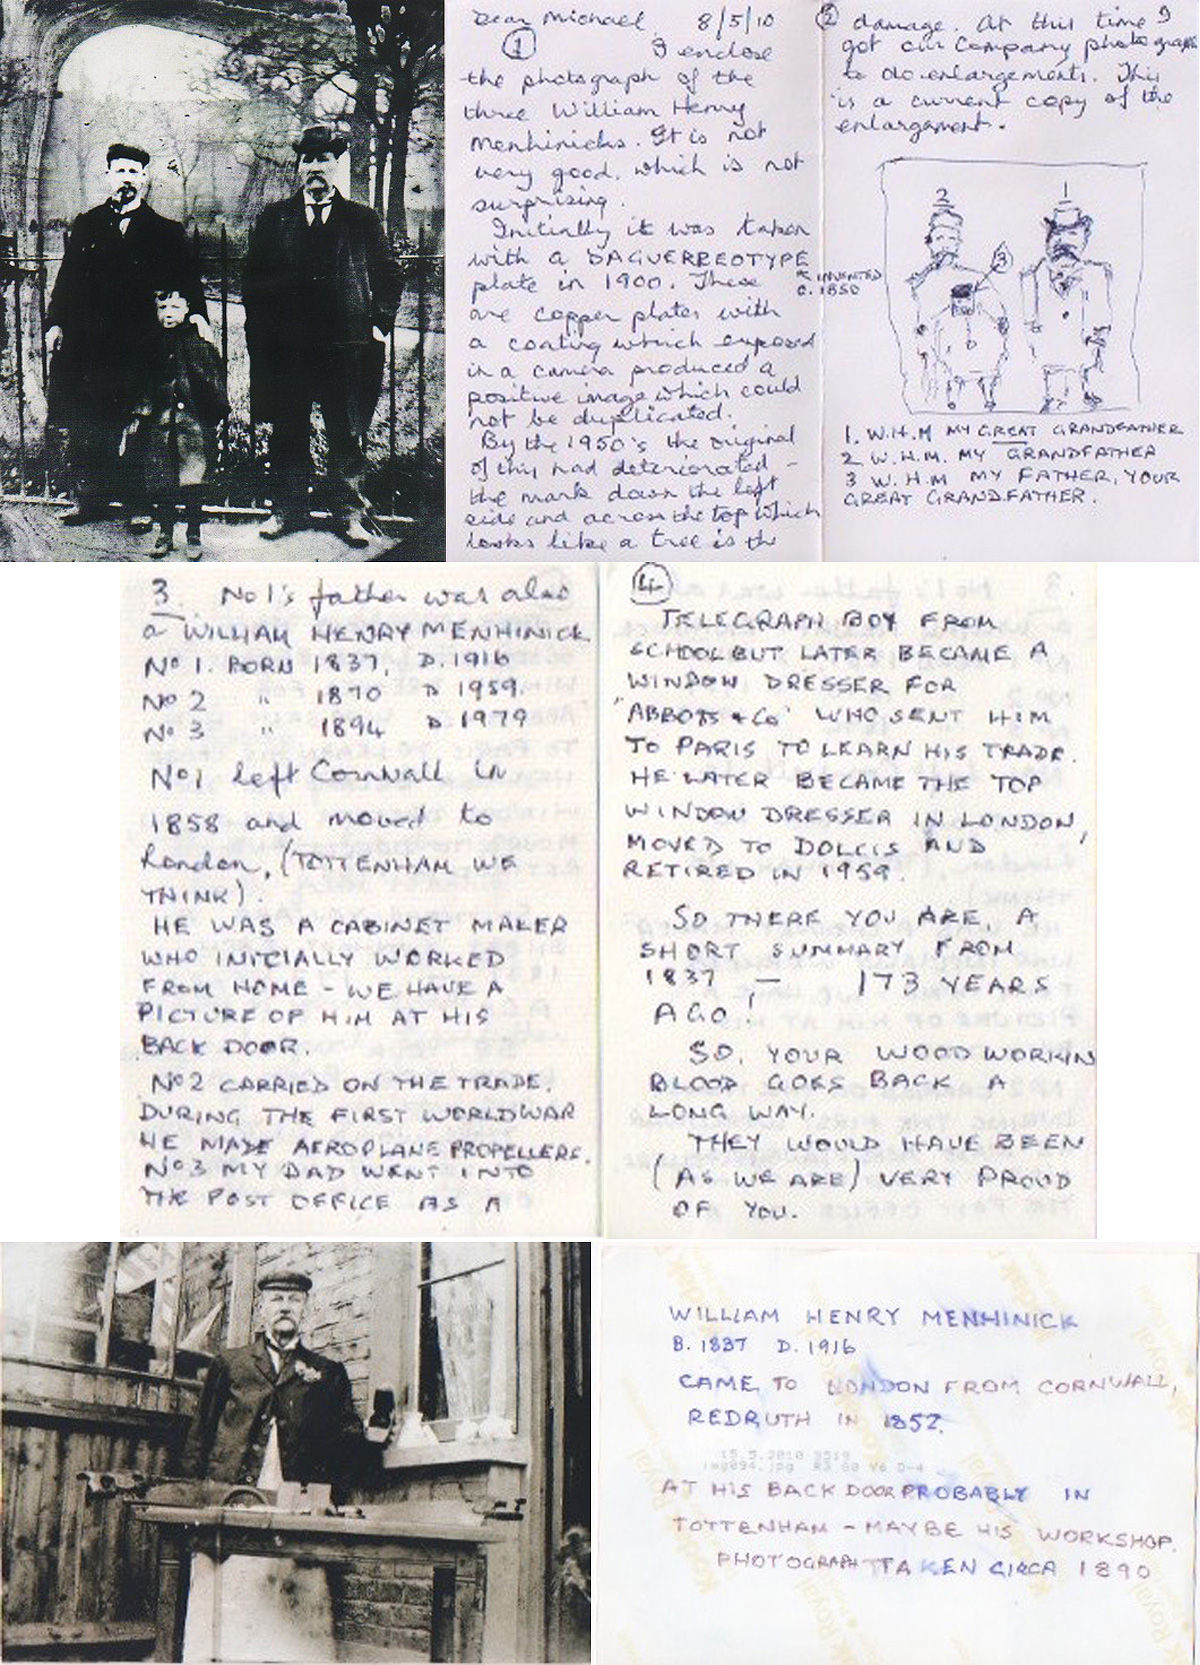 Dear Michael, 8/5/10
① I enclose
the photograph of the
three William Henry
Menhinicks. It is not
very good, which is not
surprising.
Initially it was taken
with a DAGUERREOTYPE
plate in 1900. These
are copper plates with
a coating which exposed
in a camera produced a
positive image which could
not be duplicated.
By the 1950's the original
of this had deteriorated -
the mark down the left
side and across the top which
looks like a tree is the
INVENTED
C. 1850
② damage. At this time I
got our company photographer
to do enlargements. This
is a current copy of the
enlargement.
2
1
3
1. W.H.M MY GREAT GRANDFATHER
2 W.H.M. MY GRANDFATHER
3 W.H.M MY FATHER, YOUR
GREAT GRANDFATHER.
3. No1's father was also
a WILLIAM HENRY MENHINICK
No 1. BORN 1837, D. 1916
No 2 " 1870 D 1959.
No 3 " 1894 D 1979
No1 left Cornwall in
1858 and moved to
London, (TOTTENHAM WE
THINK).
HE WAS A CABINET MAKER
WHO INITIALLY WORKED
FROM HOME - WE HAVE A
PICTURE OF HIM AT HIS
BACK DOOR.
No 2 CARRIED ON THE TRADE.
DURING THE FIRST WORLD WAR
HE MADE AEROPLANE PROPELLERS.
No 3 MY DAD WENT INTO
THE POST OFFICE AS A
④
TELEGRAPH BOY FROM
SCHOOL BUT LATER BECAME A
WINDOW DRESSER FOR
"ABBOTS & Co" WHO SENT HIM
TO PARIS TO LEARN HIS TRADE.
HE LATER BECAME THE TOP
WINDOW DRESSER IN LONDON,
MOVED TO DOLCIS AND
RETIRED IN 1959.
SO THERE YOU ARE, A
SHORT SUMMARY FROM
1837 — 173 YEARS
AGO!
SO, YOUR WOOD WORKIN
BLOOD GOES BACK A
LONG WAY.
THEY WOULD HAVE BEEN
(AS WE ARE) VERY PROUD
OF YOU.
WILLIAM HENRY MENHINICK
B. 1837 D. 1916
CAME TO LONDON FROM CORNWALL,
REDRUTH IN 1852.
15.5.2010
AT HIS BACK DOOR PROBABLY IN
TOTTENHAM - MAYBE HIS WORKSHOP.
PHOTOGRAPH TAKEN CIRCA 1890
Kodak Royal